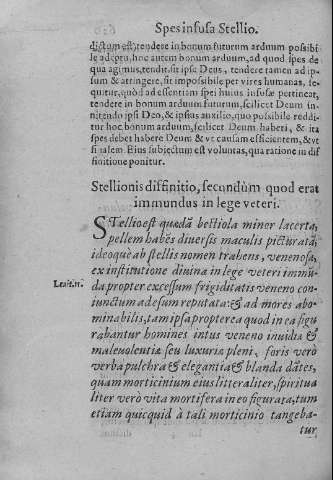 Spes infusa Stellio.
dictum est) tendere in bonum futurum arduum possibi
le adepto, hoc autem bonum arduum, ad quod spes de
qua agimus, tendit, sit ipse Deus, tendere tamen ad ip-
sum & attingere, sit impossibile per vires humanas, se-
quitur, quòd ad essentiam spei huius infusæ pertineat,
tendere in bonum arduum futurum, scilicet Deum in-
nitendo ipsi Deo, & ipsius auxilio, quo possibile reddi-
tur hoc bonum arduum, scilicet Deum haberi, & ita
spes debet habere Deum & vt causam efficientem, & vt
finalem. Eius subiectum est voluntas, qua ratione in dif
finitione ponitur.
Stellionis diffinitio, secundùm quod erat
immundus in lege veteri.
STællio est quædã bestiola miner lacerta,
pellem habẽs diuersis maculis picturatã,
ideoque ab stellis nomen trahens, venenosa,
ex institutione diuina in lege veteri immũ-
Leuit. 11.
da propter excessum frigiditatis veneno con-
iunctum adesum reputata: & ad mores abo-
minabilis, tam ipsa propterea quod in ea figu
rabantur homines intus veneno inuidiæ &
maleuolentiæ seu luxuria pleni, foris verò
verba pulchra & elegantia & blanda dãtes,
quam morticinium eius litteraliter, spiritua
liter verò vita mortifera in eo figurata, tum
etiam quicquid à tali morticinio tangeba-
tur